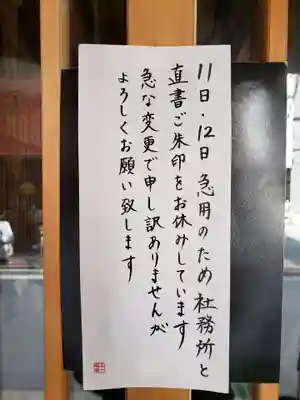 11日・12日 急用のため社務所と
直書ご朱印をお休みしています
急な変更で申し訳ありませんが
よろしくお願い致します